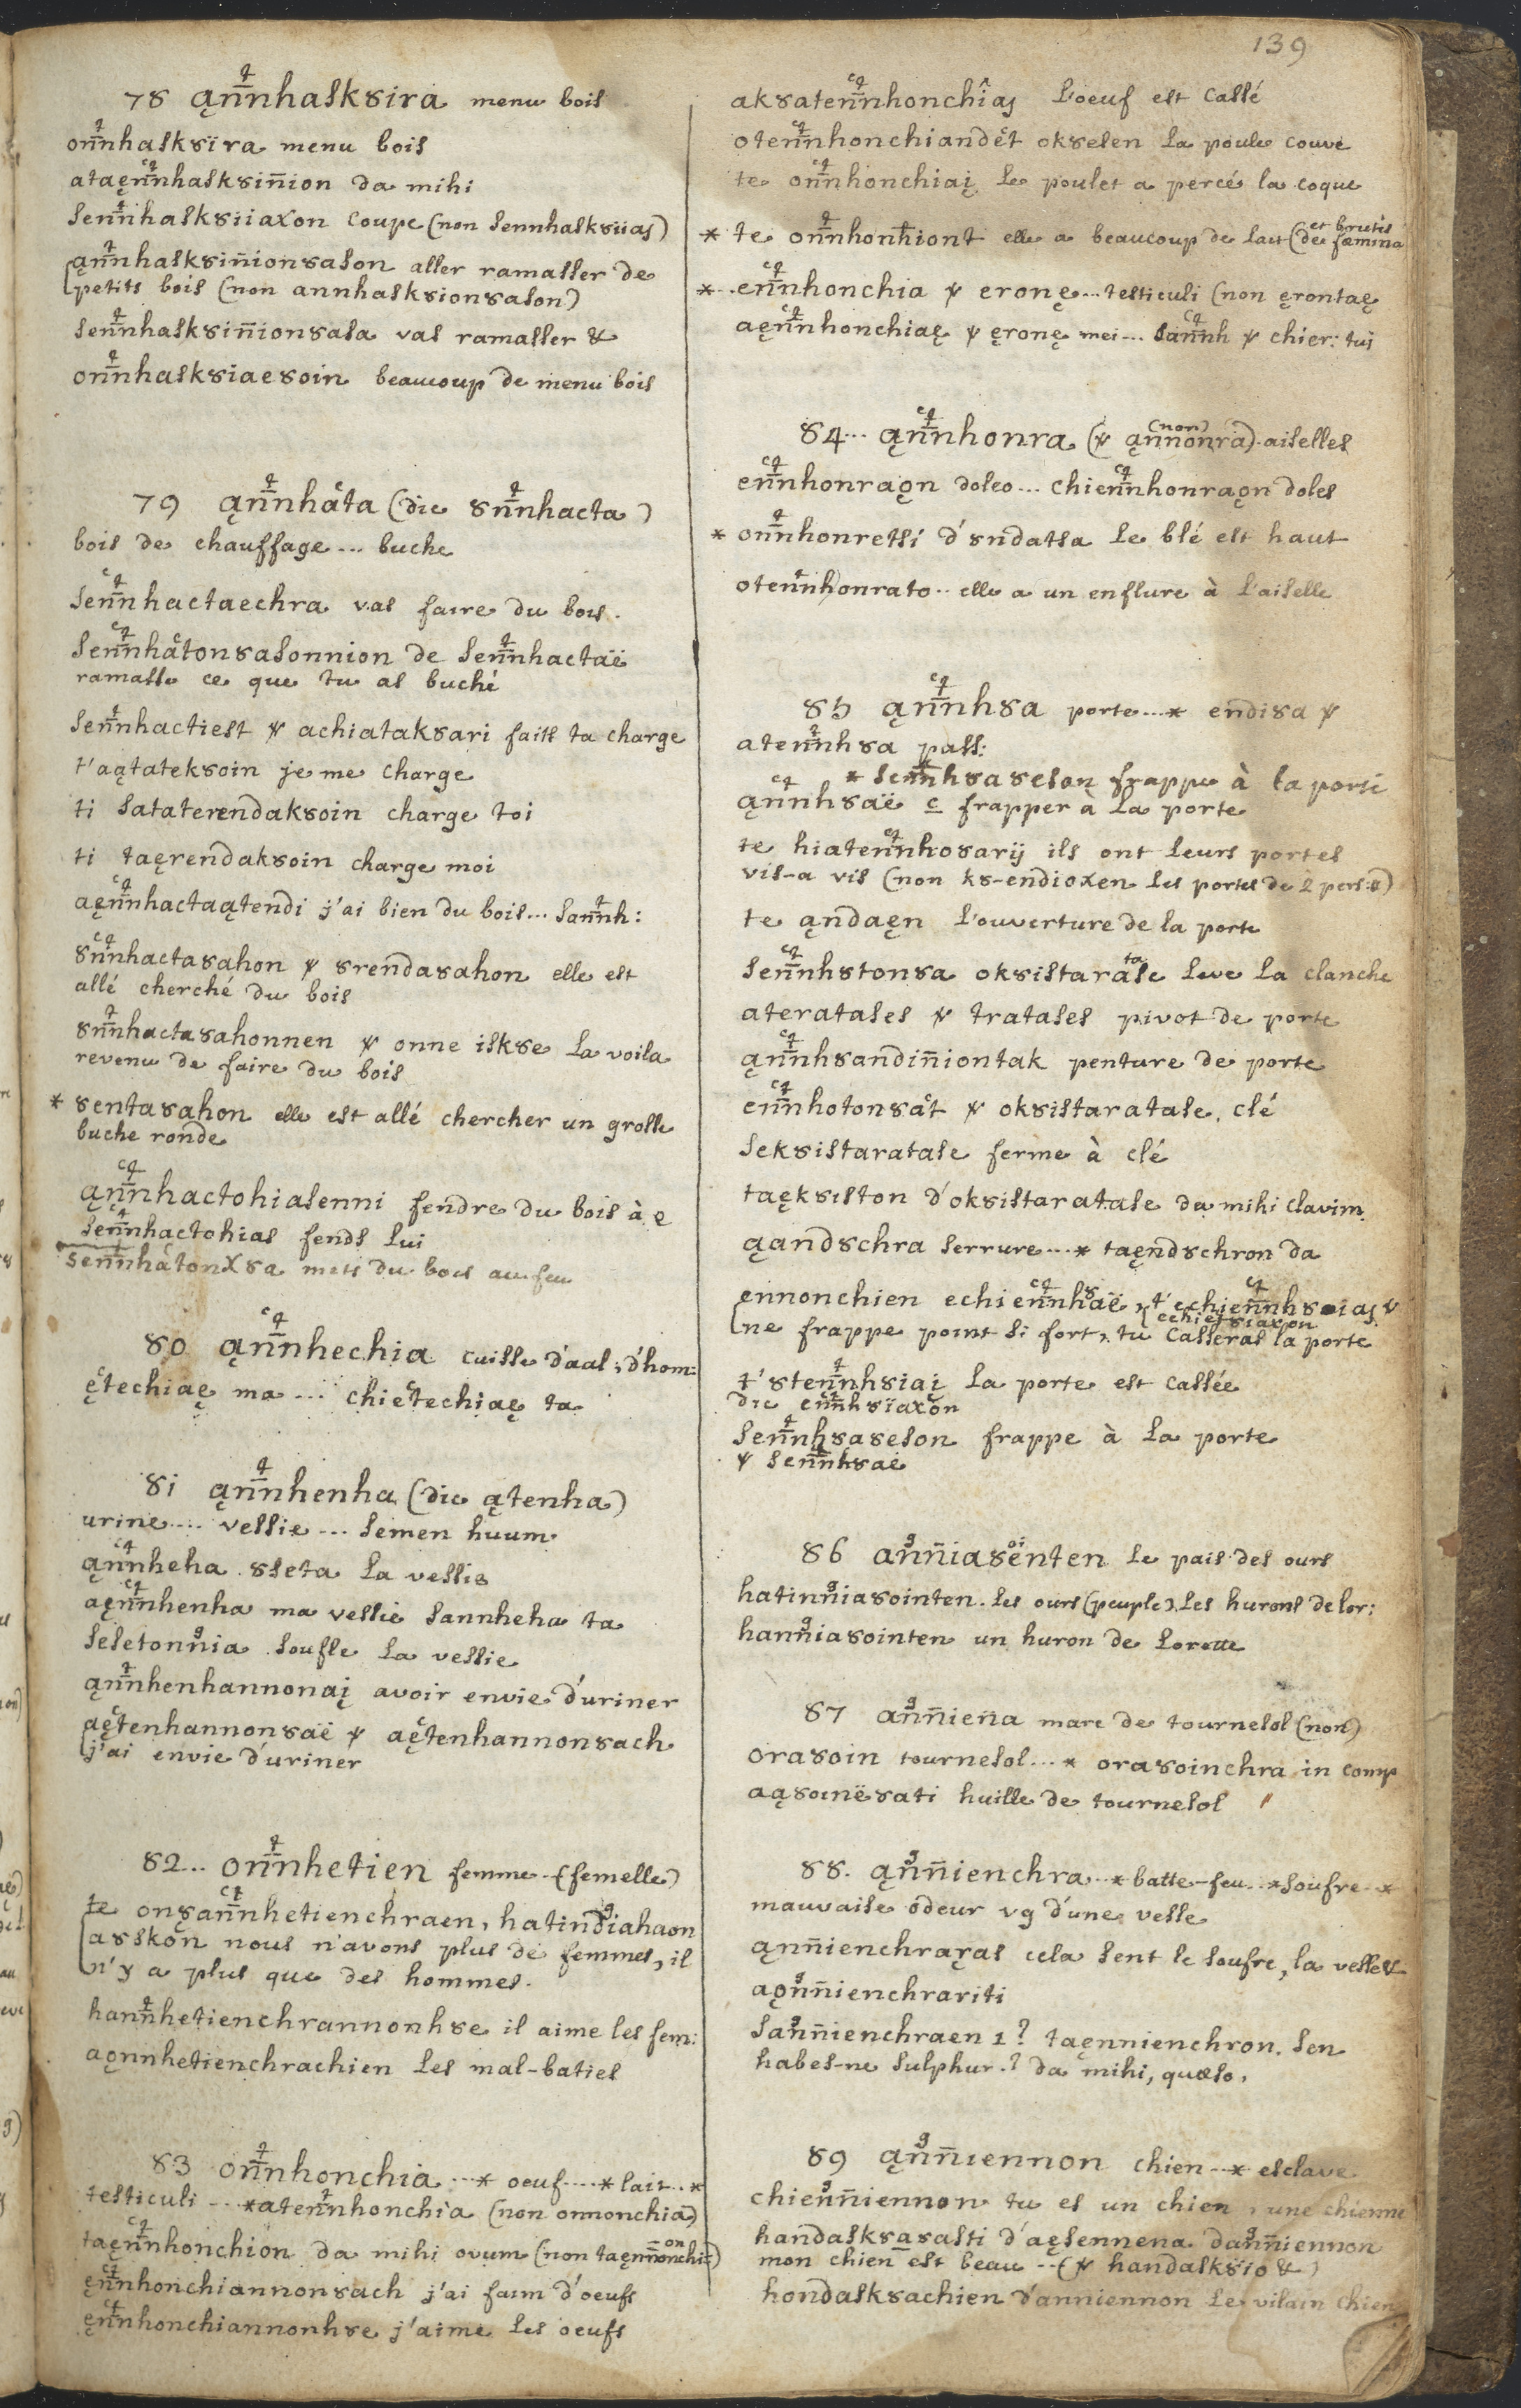 139
78 ąnnhask8ira menu bois
onnhask8ira menu bois
ataęnnhask8iñion da mihi
sennhask8iiaxon coupe (non sennhask8iias)
ąnnhask8iñion8ason aller ramasser de
petits bois (non annhask8ion8ason)
sennhask8iñion8asa vas ramasser &
onnhask8iae8oin beaucoup de menu bois
79 ąnnhaͨta (dic 8nnhacta)
bois de chauffage ... buche
sennhactaechra vas faire du bois.
sennhaͨton8asonnion de sennhactaë
ramasse ce que tu as buché
sennhactiest ѱ achiatak8ari faits ta charge
t'aątatek8oin je me charge
ti sataterendak8oin charge toi
ti taęrendak8oin charge moi
aęnnhactaątendi j'ai bien du bois ... sannh:
8nnhacta8ahon ѱ 8renda8ahon elle est
allé cherché du bois
8nnhacta8ahonnen ѱ onne isk8e la voila
revenu de faire du bois
* 8enta8ahon elle est allé chercher un grosse
buche ronde
ąnnhactohiasenni fendre du bois à ę
sennhactohias fends lui
sennhaͨtonx8a mets du bois au feu
80 ąnnhechia cuisse d'aal; d'hom:
ęͨtechiaę ma ... chieͨtechiaę ta
81 ąnnhenha (dic ątenha)
urine .... vessie ... semen huum.
ąnnheha 8seta la vessie
aęnnhenha ma vessie sannheha ta
seseton̄nia soufle la vessie
ąnnhenhannonaį avoir envie d'uriner
aęͨtenhannon8aë ѱ aęͨtenhannon8ach
j'ai envie d'uriner
82 .. onnhetien femme .. (femelle)
te on8annhetienchraen, hatindiahaon
a8skon nous n'avons plus de femmes, il
n'y a plus que des hommes.
hannhetienchrannonh8e il aime les fem:
aonnhetienchrachien les mal-baties
83 onnhonchia ... * oeuf .... * lait .. *
testiculi ... * atennhonchia (non onnonchia)
taęnnhonchion da mihi ovum (non taęnnonchi= on)
ęnnhonchiannon8ach j'ai faim d'oeufs
ęnnhonchiannonh8e j'aime les oeufs
ak8atennhonchias L'oeuf est cassé
otennhonchiandeͨt ok8esen la poule couve
te onnhonchiaį le poulet a percé la coque
* te onnhonhiont elle a beaucoup de lait (de fœmina et brutis
* .. ennhonchia ѱ eronę ... testiculi (non ęrontaę
aęnnhonchiaę ѱ ęronę mei ... sannh ѱ chier: tui
84 ... ąnnhonra (ѱ ąnnonra) (non) aiselles
ennhonraǫn doleo ... chiennhonraǫn doles
* onnhonretsi d'8ndatsa le blé est haut
otennhonrato .. elle a un enflure à l'aiselle
85 ąnnh8a porte ... * endi8a ѱ
atennh8a pass:
* sennh8aseson frappe à la porte
ąnnh8aë c frapper à la porte
te hiatennho8arij ils ont leurs portes
vis-a vis (non k8-endioxen les portes de 2 pers:)
te ąndaęn L'ouverture de la porte
sennh8ton8a ok8istaratase leve la clanche
ateratases ѱ tratases pivot de porte
ąnnh8andiñiontak penture de porte
ennhoton8aͨt ѱ ok8istaratase. clé
sek8istaratase ferme à clé
taęk8iston d'ok8istaratase da mihi clavim.
ąand8chra serrure ... * taęnd8chron da
ennonchien echiennh8aë, t'echiennh8ias ѱ
echiet8iaxon
ne frappe point si fort, tu casseras la porte
t'8tennh8iaį la porte est cassée
dic ennh8iaxon
sennh8aseson frappe à la porte
ѱ sennh8aë
86 anñia8enten le pais des ours
hatinnia8ointen. les ours (peuple). les hurons de lor:
hannia8ointen un huron de Lorette
87 anñieña marc de tournesol (non)
ora8oin tournesol ... * ora8oinchra in comp
aą8oinë8ati huille de tournesol
88. ąnñienchra .. * batte-feu .. * soufre .. *
mauvaise odeur vg d'une vesse
ąnñienchraras cela sent le soufre, la vesse &
aǫnñienchrariti
sanñienchraen 1? taęnnienchron. sen
habes-ne sulphur.? da mihi, quæso.
89 ąnñiennon chien .. * esclave
chienñiennon tu es un chien, une chienne
handask8a8asti d'aęsennena danñiennon
mon chien est beau .. (ѱ handask8io &)
hondask8achien d'anniennon le vilain chien